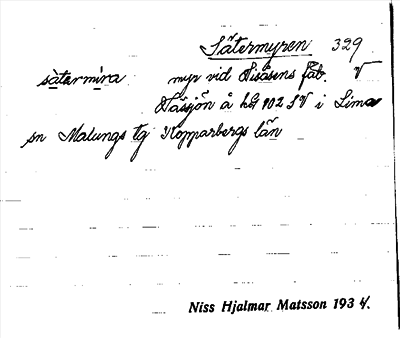 Sätermyren 329
sàtermìra myr vid Risåsens fäb. V
Nässjön å kbl 102 SV i Lima
sn Malungs tg Kopparbergs län
Niss Hjalmar Matsson 193 4.